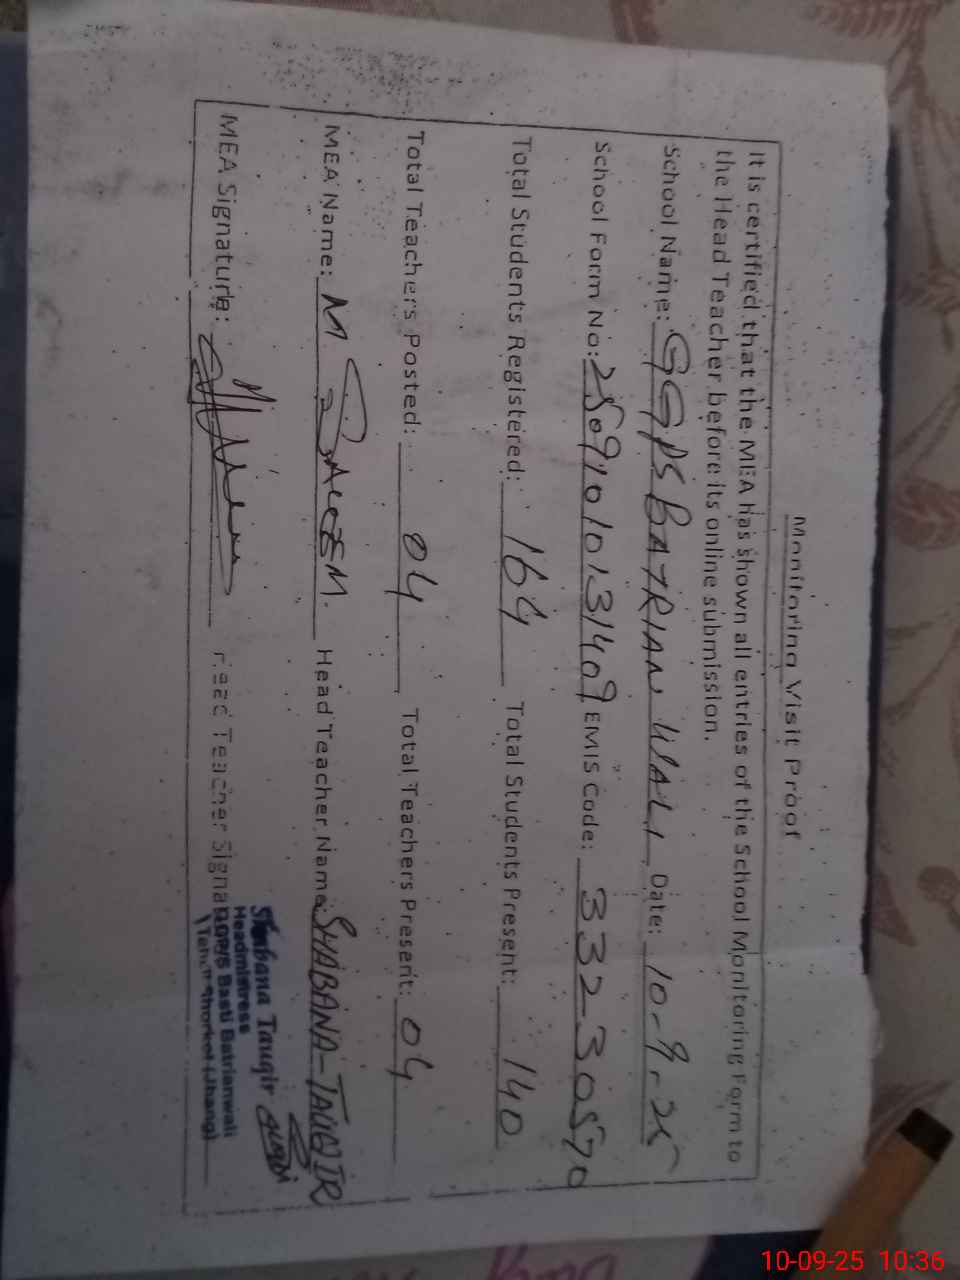 Monitoring Visit Proof
It is certified that the MEA has shown all entries of the School Monitoring Form to
the Head Teacher before its online submission.
School Name: GGPS BATRIAN WALI Date: 10-9-25
School Form No: EMIS Code: 33230570
Total Students Registered: 164 Total Students Present: 140
Total Teachers Posted: 04 Total Teachers Present: 04
MEA Name: M SALEEM. Head Teacher Name: SHABANA-TAUQIR
MEA Signature: Head Teacher Signa
Shabana Tauqir
Headmistress
GGP/S Basti Batrianwali
Teh. Shorkot (Jhang)
10-09-25 10:36